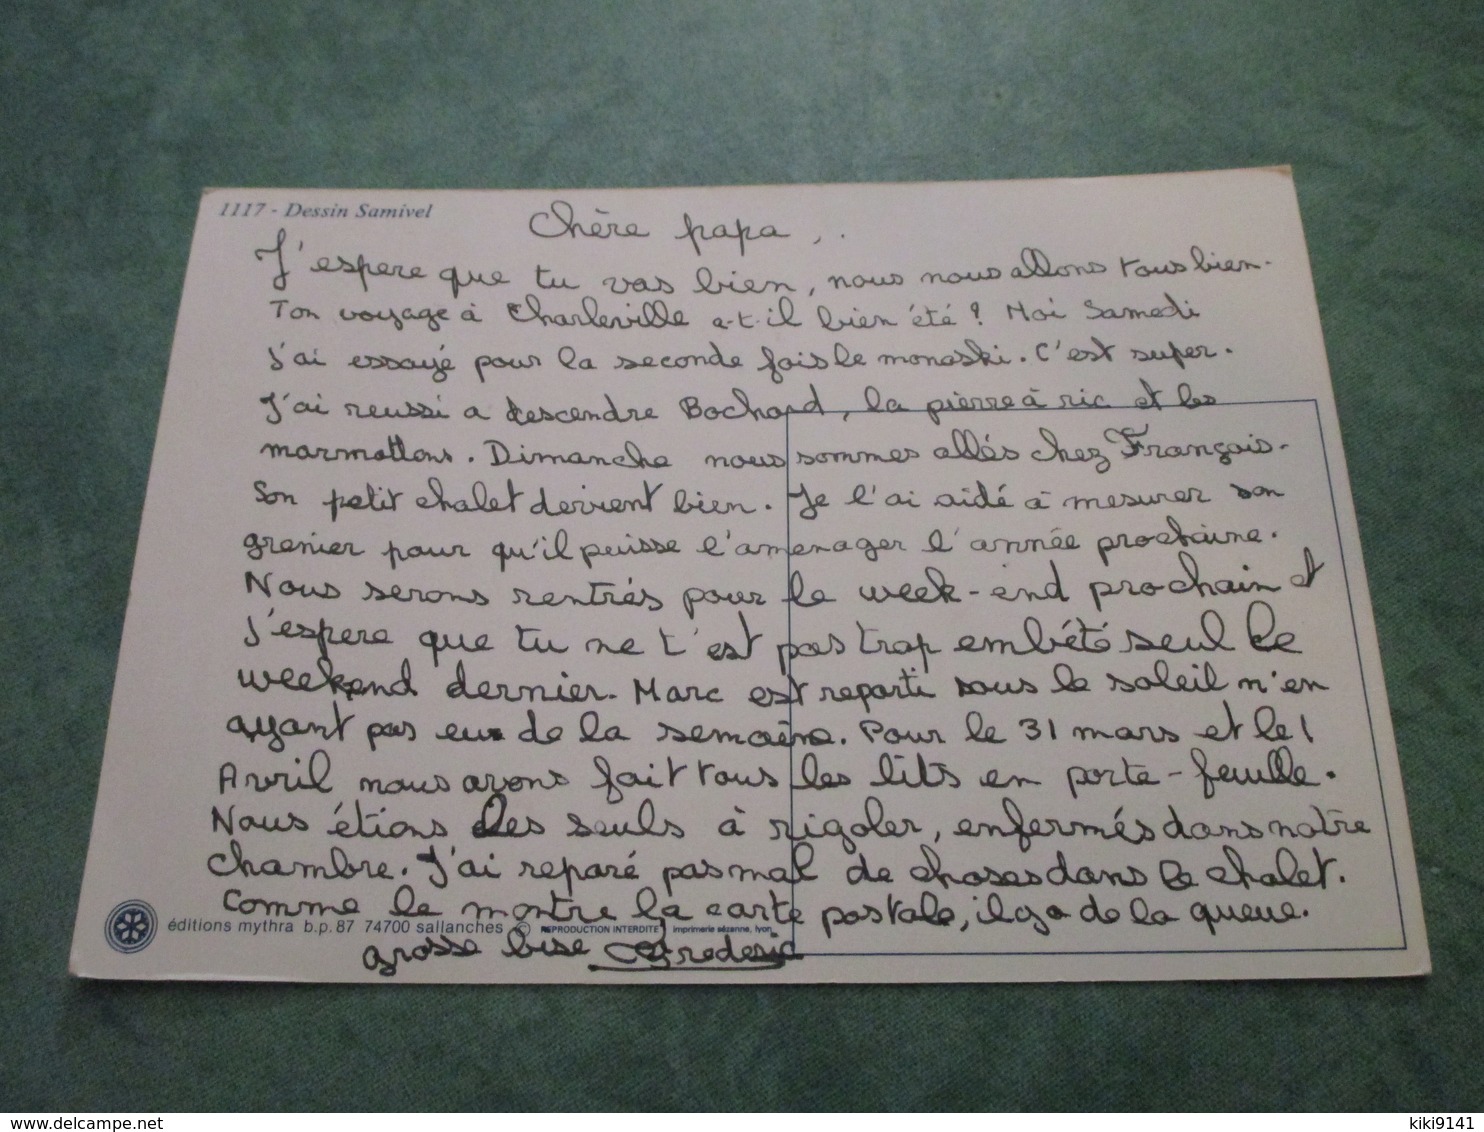 1117 - Dessin Samivel
Chère papa,.
J'espere que tu vas bien, nous nous allons tous bien.
Ton voyage à Charleville a-t-il bien été ? Moi Samedi
j'ai essayé pour la seconde fois le monoski. C'est super.
J'ai reussi a descendre Bochard, la pierre à ric et les
marmottons. Dimanche nous sommes allés chez François.
Son petit chalet devient bien. Je l'ai aidé à mesurer son
grenier pour qu'il puisse l'amenager l'année prochaine.
Nous serons rentrés pour le week-end prochain et
j'espere que tu ne t'est pas trop embété seul le
weekend dernier. Marc est reparti sous le soleil n'en
ayant pas eu de la semaine. Pour le 31 mars et le 1
Avril nous avons fait tous les lits en porte-feuille.
Nous étions les seuls à rigoler, enfermés dans notre
chambre. J'ai reparé pas mal de choses dans le chalet.
Comme le montre la carte postale, il y a de la queue.
éditions mythra b.p. 87 74700 sallanches © REPRODUCTION INTERDITE imprimerie sézanne, lyon
grosse bise Frederic
delcampe.net
kiki9141